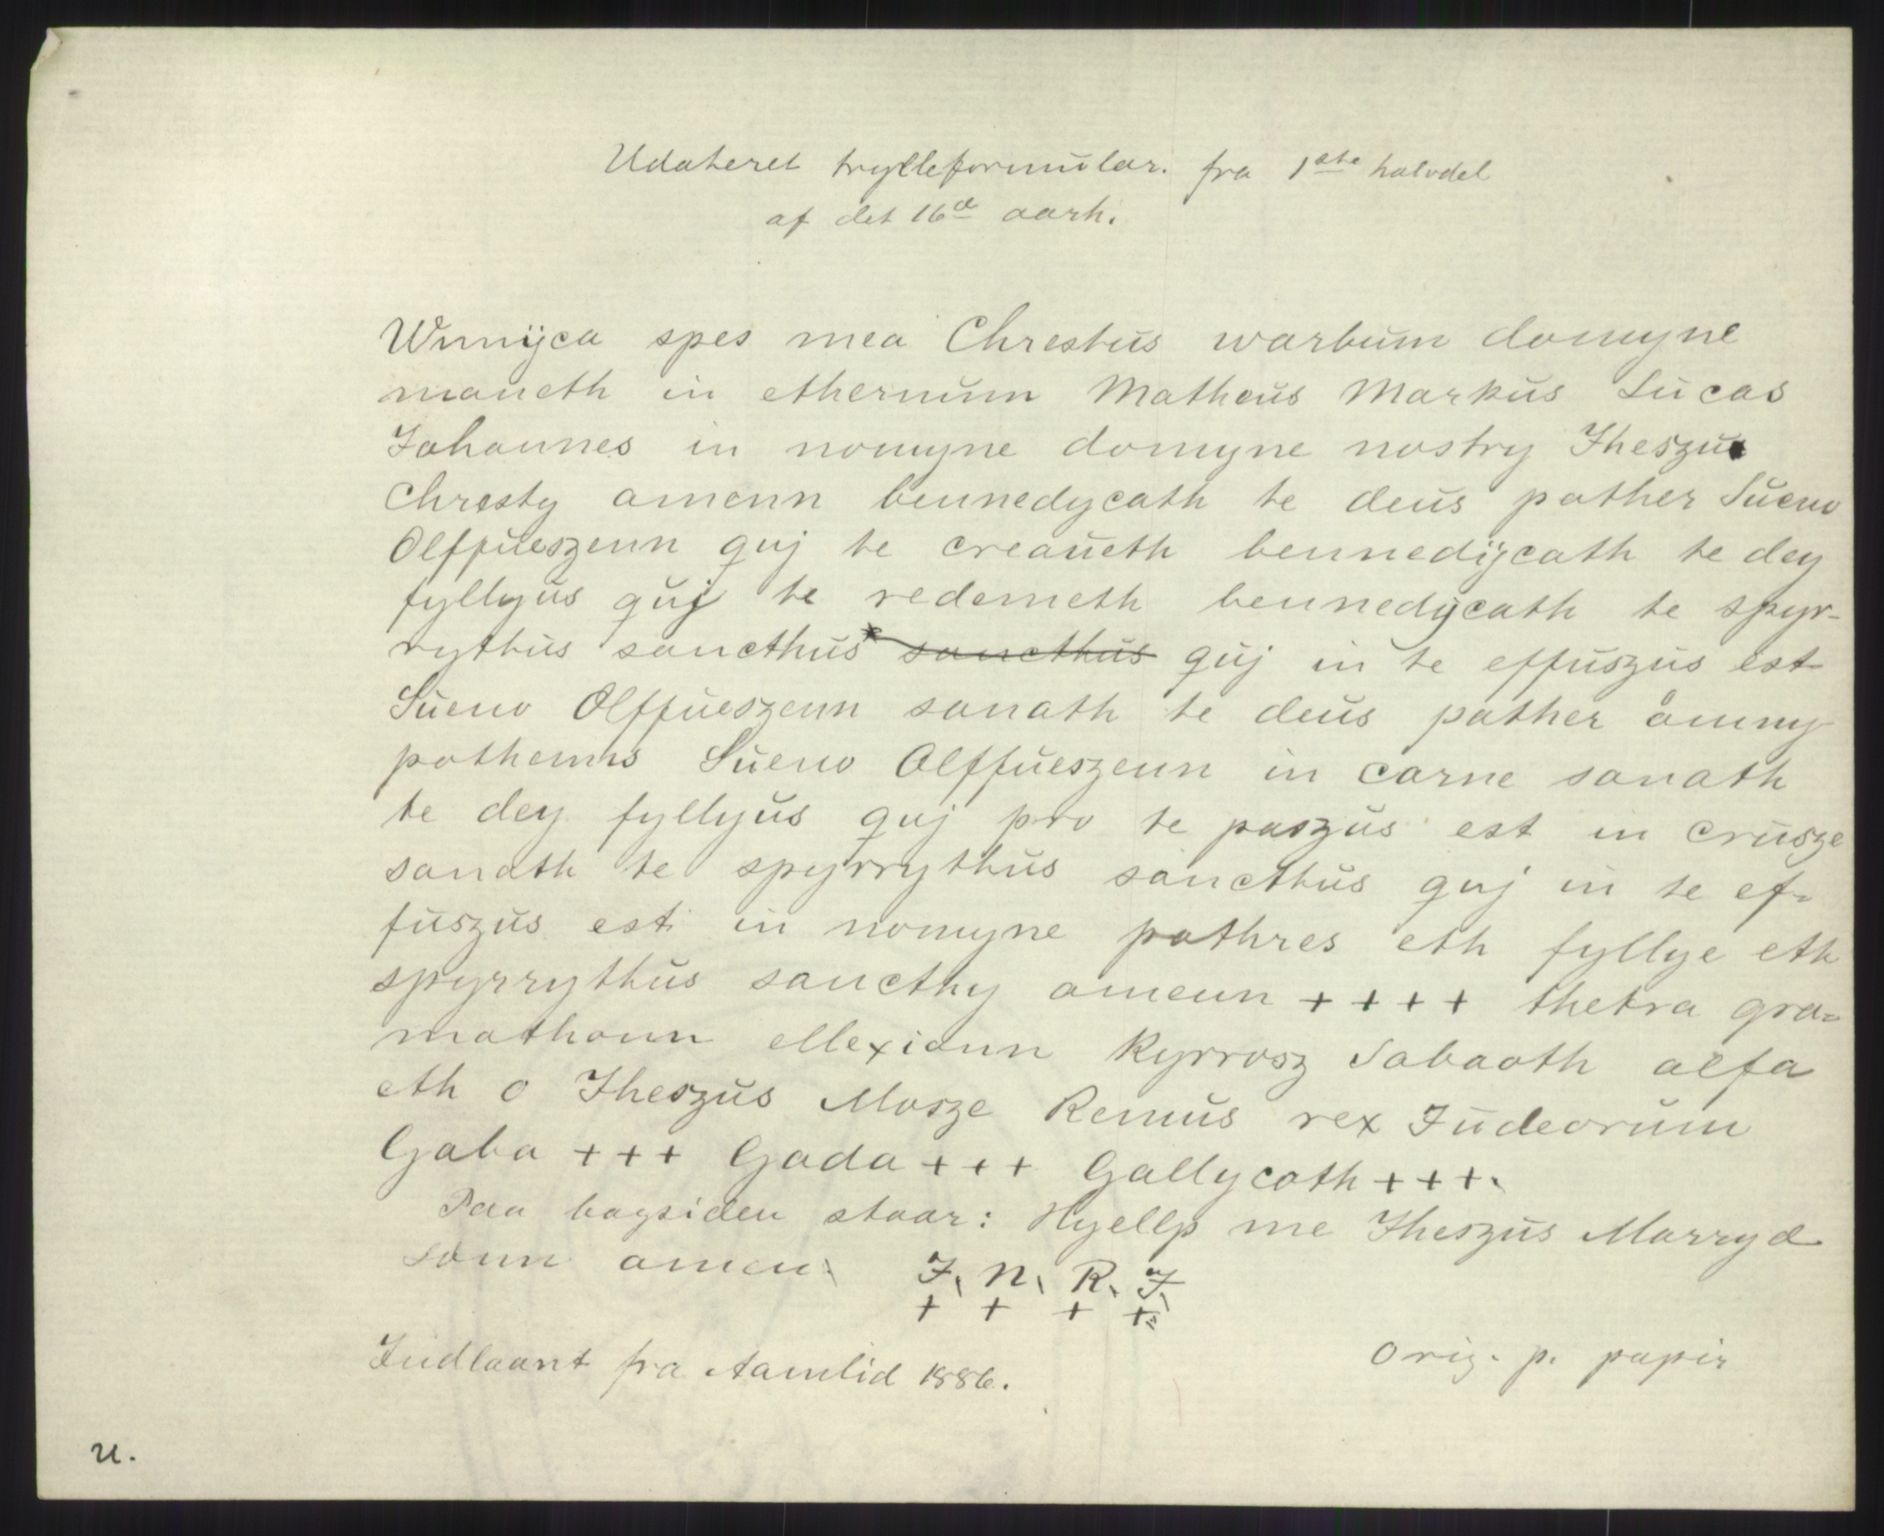 Udateret trylleformular. fra 1ste halvdel
af det 16d aarh.
Wnnijca spes mea Chrestus warbum domyne
maneth in ethernum Matheus Markus Lucas
Johannes in nomyne domyne nostry Jheszus
Chresty amenn bennedycath te deus pather Sueno
Olffueszenn quj te creaueth bennedijcath te dey
fyllyus quj te redemeth bennedycath te spyr-
rythus sancthus sancthus quj in te effuszus est
Sueno Olffueszenn sanath te deus pather omny
pothenns Sueno Olffueszenn in carne sanath
te dey fyllyus quj pro te paszus est in crusze
sanath te spyrrythus sancthus quj in te ef-
fuszus est in nomyne pathres eth fyllye eth
spyrrythus sancthy amenn + + + + thetra gra-
mathonn ellexionn Kyrrosz Sabaoth alfa
eth o Jheszus Mosze Remus rex Judeorum
Gaba + + + Gada + + + Gallycath + + +.
Paa bagsiden staar: Hyellp me Jheszus Marryd
sonn amen. J. N. R. J.
+ + + +
Indlaant fra Aamlid 1886. Orig. p. papir
U.